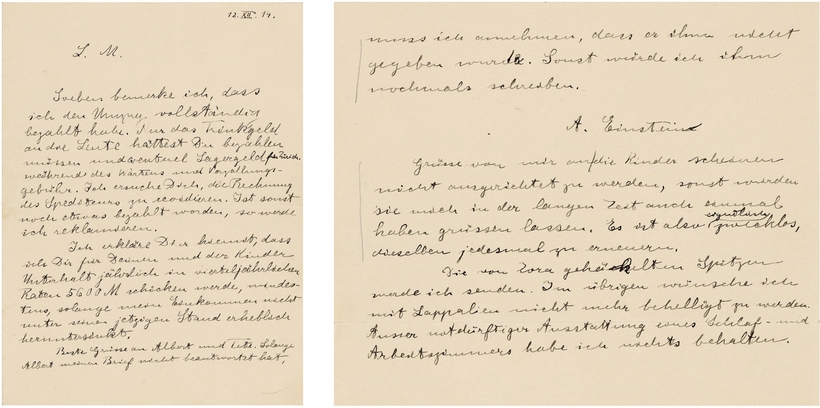 12. XII. 14.
L. M.
Soeben bemerke ich, dass
ich den Umzug vollständig
bezahlt habe. Nur das Trinkgeld
an die Leute hättest Du bezahlen
müssen und eventuel Lagergeld
während des Wartens und Verzollungs-
gebühr. Ich ersuche Dich, die Rechnung
des Spediteurs zu revidieren. Ist sonst
noch etwas bezahlt worden, so werde
ich reklamieren.
Ich erkläre Dir hiemit, dass
ich Dir für Deinen und der Kinder
Unterhalt jährlich in vierteljährlichen
Raten 5600 M schicken werde, mindes-
tens, solange mein Einkommen nicht
unter seinen jetzigen Stand erheblich
heruntersinkt.
Beste Grüsse an Albert und Tete. Solange
Albert meinen Brief nicht beantwortet hat,
muss ich annehmen, dass er ihm nicht
gegeben wurde. Sonst würde ich ihm
nochmals schreiben.
A. Einstein
Grüsse von mir an die Kinder scheinen
nicht ausgerichtet zu werden, sonst würden
sie mich in der langen Zeit auch einmal
haben grüssen lassen. Es ist also eigentlich zwecklos,
dieselben jedesmal zu erneuern.
Die von Zora gehäckelten Spitzen
werde ich senden. Im übrigen wünsche ich
mit Lappalien nicht mehr behelligt zu werden.
Ausser notdürftiger Ausstattung eines Schlaf- und
Arbeitszimmers habe ich nichts behalten.